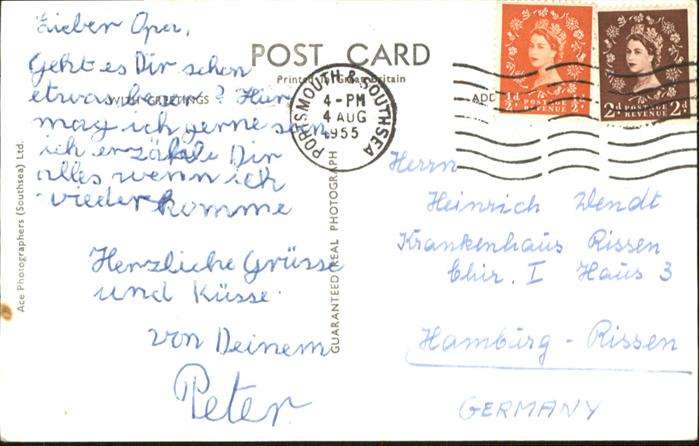 Lieber Opa,
Geht es Dir schon
etwas besser? Hier
mag ich gerne sein
ich erzähle Dir
alles wenn ich
wieder komme
Herzliche Grüsse
und Küsse
von Deinem
Peter
POST CARD
Printed in Great Britain
WITH GREETINGS
ADD
Ace Photographers (Southsea) Ltd.
GUARANTEED REAL PHOTOGRAPH
PORTSMOUTH & SOUTHSEA
4-PM
4 AUG
1955
½d POSTAGE REVENUE ½d
2d POSTAGE REVENUE 2d
Herrn
Heinrich Wendt
Krankenhaus Rissen
Chir. I Haus 3
Hamburg-Rissen
GERMANY